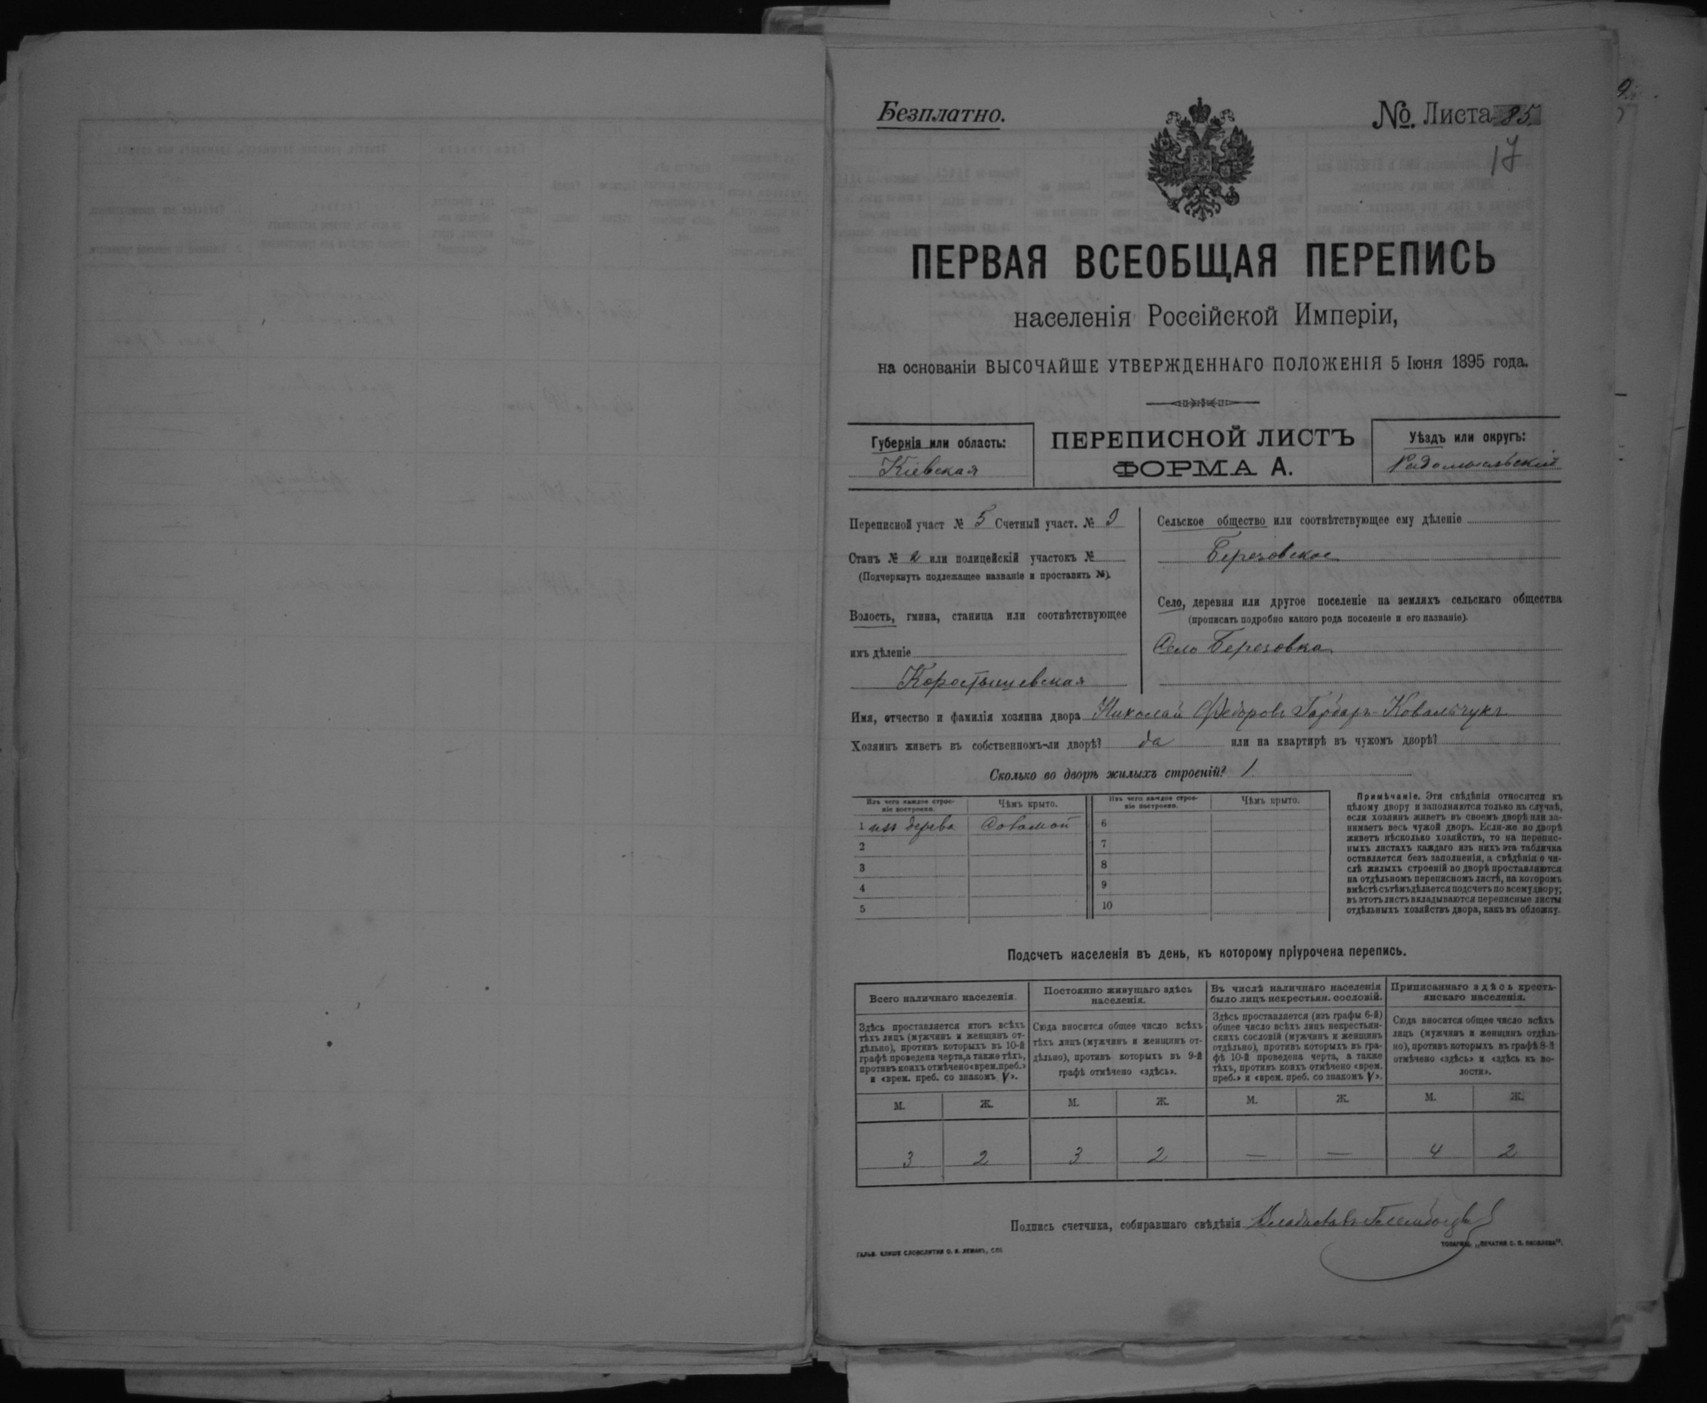 Безплатно.
№ Листа 85
17
ПЕРВАЯ ВСЕОБЩАЯ ПЕРЕПИСЬ
населенія Россійской Имперіи,
на основаніи ВЫСОЧАЙШЕ УТВЕРЖДЕННАГО ПОЛОЖЕНІЯ 5 Іюня 1895 года.
Губернія или область:
Кіевская
ПЕРЕПИСНОЙ ЛИСТЪ
ФОРМА А.
Уѣздъ или округъ:
Радомысльский
Переписной участ № 5 Счетный участ. № 9
Станъ № 2 или полицейскій участокъ №
(Подчеркнуть подлежащее названіе и проставить №).
Волость, гмина, станица или соотвѣтствующее
имъ дѣленіе
Коростышевская
Сельское общество или соотвѣтствующее ему дѣленіе
Березовское
Село, деревня или другое поселеніе на земляхъ сельскаго общества
(прописать подробно какого рода поселеніе и его названіе).
Село Березовка
Имя, отчество и фамилія хозяина двора Николай Федоровъ Гарбаръ-Ковальчукъ
Хозяинъ живетъ въ собственномъ-ли дворѣ? да или на квартирѣ въ чужомъ дворѣ?
Сколько во дворѣ жилыхъ строеній? 1
Изъ чего каждое строе-
ніе построено.
Чѣмъ крыто.
1 изъ дерева Соломой
2
3
4
5
Изъ чего каждое строе-
ніе построено.
Чѣмъ крыто.
6
7
8
9
10
Примѣчаніе. Эти свѣдѣнія относятся къ
цѣлому двору и заполняются только въ случаѣ,
если хозяинъ живетъ въ своемъ дворѣ или за-
нимаетъ весь чужой дворъ. Если-же во дворѣ
живетъ нѣсколько хозяйствъ, то на перепис-
ныхъ листахъ каждаго изъ нихъ эта табличка
оставляется безъ заполненія, а свѣдѣнія о чи-
слѣ жилыхъ строеній во дворѣ проставляются
на отдѣльномъ переписномъ листѣ, на которомъ
вмѣстѣ съ тѣмъ дѣлается подсчетъ по всему двору;
въ этотъ листъ вкладываются переписные листы
отдѣльныхъ хозяйствъ двора, какъ въ обложку.
Подсчетъ населенія въ день, къ которому пріурочена перепись.
Всего наличнаго населенія.
Здѣсь проставляется итогъ всѣхъ
тѣхъ лицъ (мужчинъ и женщинъ от-
дѣльно), противъ которыхъ въ 10-й
графѣ проведена черта, а также тѣхъ,
противъ коихъ отмѣчено «врем. преб.»
и «врем. преб. со знакомъ V».
М. Ж.
3 2
Постоянно живущаго здѣсь
населенія.
Сюда вносится общее число всѣхъ
тѣхъ лицъ (мужчинъ и женщинъ от-
дѣльно), противъ которыхъ въ 9-й
графѣ отмѣчено «здѣсь».
М. Ж.
3 2
Въ числѣ наличнаго населенія
было лицъ некрестьян. сословій.
Здѣсь проставляется (изъ графы 6-й)
общее число всѣхъ лицъ некрестьян-
скихъ сословій (мужчинъ и женщинъ
отдѣльно), противъ которыхъ въ гра-
фѣ 10-й проведена черта, а также
тѣхъ, противъ коихъ отмѣчено «врем.
преб.» и «врем. преб. со знакомъ V».
М. Ж.
— —
Приписаннаго здѣсь кресть-
янскаго населенія.
Сюда вносится общее число всѣхъ
лицъ (мужчинъ и женщинъ отдѣль-
но), противъ которыхъ въ графѣ 8-й
отмѣчено «здѣсь» и «здѣсь къ во-
лости».
М. Ж.
4 2
Подпись счетчика, собиравшаго свѣдѣнія
ГАЛЬВ. КЛИШЕ СЛОВОЛИТНИ О. И. ЛЕМАНЪ, СПБ.